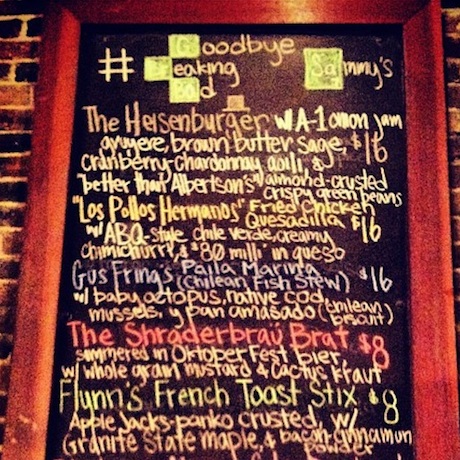 # Goodbye
Breaking Sammy's
Bad
The Heisenburger w/ A-1 onion jam
gruyere, brown butter sage, $16
cranberry-chardonnay aoili, &
"better than Albertson's" almond-crusted
crispy green beans
"Los Pollos Hermanos" Fried Chicken
Quesadilla $16
w/ ABQ-style chile verde, creamy
chimichurry, & "$80 milli" in queso
Gus Fring's Paila Marina
(Chilean Fish Stew) $16
w/ baby octopus, native cod,
mussels, y pan amasado (chilean
biscuit)
The Shraderbraü Brat $8
summered in Oktoberfest bier,
w/ whole grain mustard & cactus kraut
Flynn's French Toast Stix $8
Apple Jacks-panko crusted, w/
Granite State maple, & bacon-cinnamon
powder